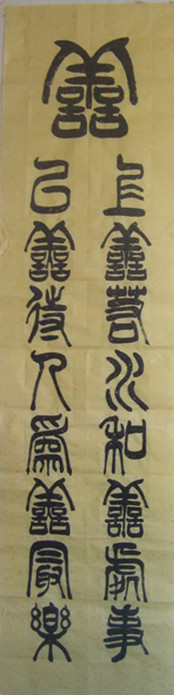 善
上善若水和善處事
以善待人爲善最樂